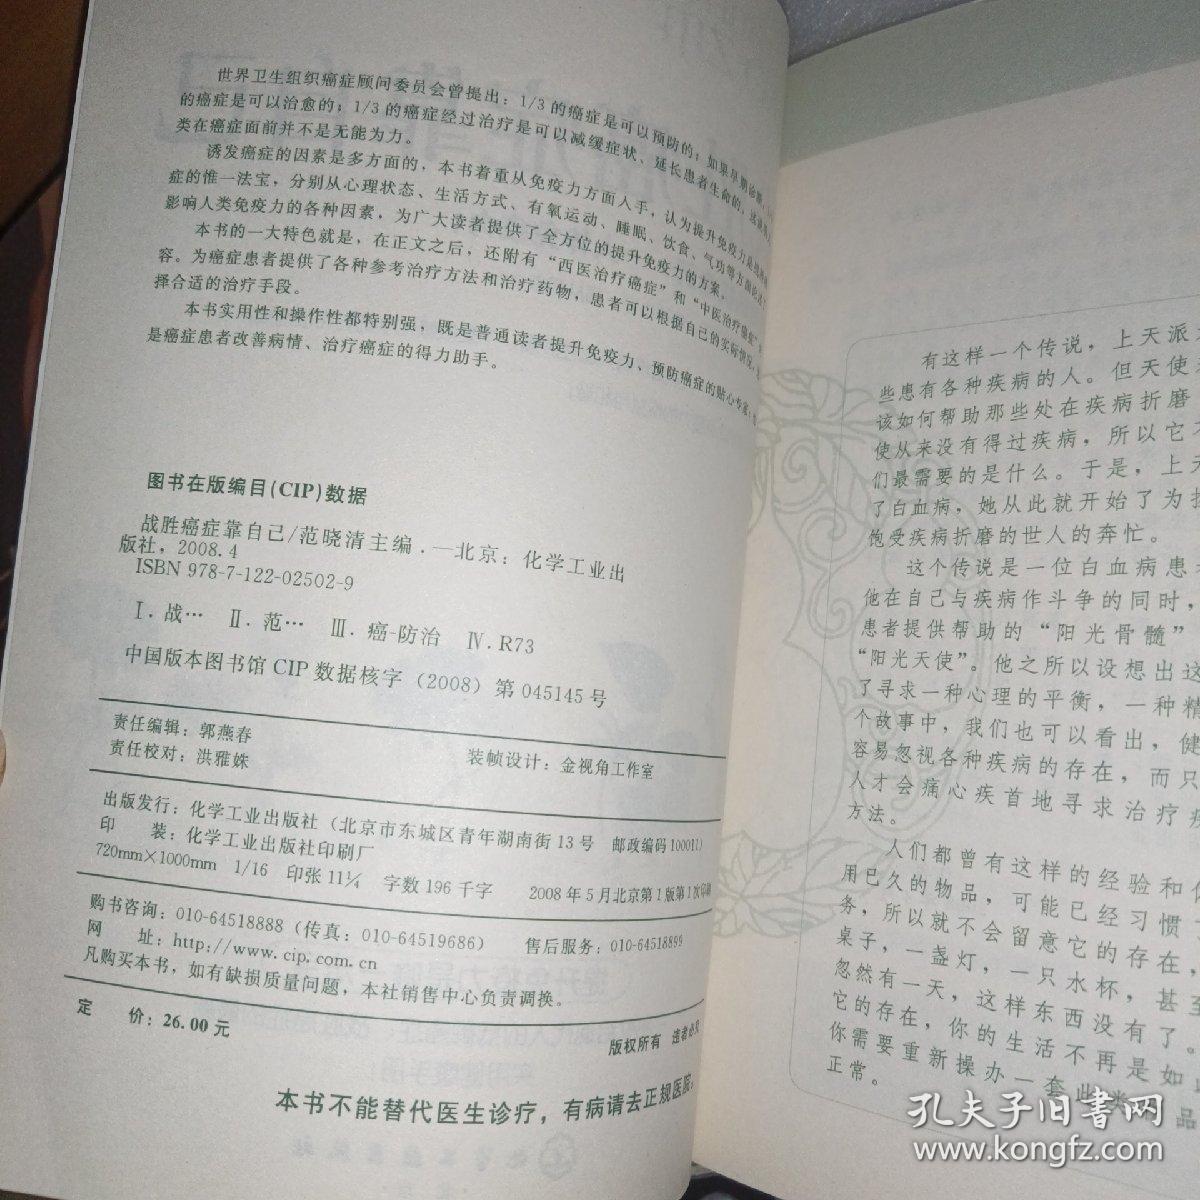 世界卫生组织癌症顾问委员会曾提出：1/3的癌症是可以预防的；如果早期诊断，
的癌症是可以治愈的；1/3的癌症经过治疗是可以减缓症状、延长患者生命的，
类在癌症面前并不是无能为力。
诱发癌症的因素是多方面的，本书着重从免疫力方面入手，认为提升免疫力是
症的惟一法宝，分别从心理状态、生活方式、有氧运动、睡眠、饮食、气功等方面
影响人类免疫力的各种因素，为广大读者提供了全方位的提升免疫力的方案。
本书的一大特色就是，在正文之后，还附有“西医治疗癌症”和“中医治疗癌症”
容。为癌症患者提供了各种参考治疗方法和治疗药物，患者可以根据自己的实际情况，
择合适的治疗手段。
本书实用性和操作性都特别强，既是普通读者提升免疫力、预防癌症的贴心专家；
是癌症患者改善病情、治疗癌症的得力助手。
图书在版编目(CIP)数据
战胜癌症靠自己/范晓清主编．—北京：化学工业出
版社，2008.4
ISBN 978-7-122-02502-9
Ⅰ.战… Ⅱ.范… Ⅲ.癌-防治 Ⅳ.R73
中国版本图书馆CIP数据核字（2008）第045145号
责任编辑：郭燕春
责任校对：洪雅姝 装帧设计：金视角工作室
出版发行：化学工业出版社（北京市东城区青年湖南街13号 邮政编码100011）
印 装：化学工业出版社印刷厂
720mm×1000mm 1/16 印张11¼ 字数196千字 2008年5月北京第1版第1次印刷
购书咨询：010-64518888（传真：010-64519686） 售后服务：010-64518899
网 址：http://www.cip.com.cn
凡购买本书，如有缺损质量问题，本社销售中心负责调换。
定 价：26.00元 版权所有 违者必究
本书不能替代医生诊疗，有病请去正规医院
有这样一个传说，上天派
些患有各种疾病的人。但天使
该如何帮助那些处在疾病折磨
使从来没有得过疾病，所以它
们最需要的是什么。于是，上天
了白血病，她从此就开始了为
饱受疾病折磨的世人的奔忙。
这个传说是一位白血病患
他在自己与疾病作斗争的同时，
患者提供帮助的“阳光骨髓”
“阳光天使”。他之所以设想出这
了寻求一种心理的平衡，一种精
个故事中，我们也可以看出，健
容易忽视各种疾病的存在，而只
人才会痛心疾首地寻求治疗疾
方法。
人们都曾有这样的经验和
用已久的物品，可能已经习惯
务，所以就不会留意它的存在，
桌子，一盏灯，一只水杯，甚至
忽然有一天，这样东西没有了。
它的存在，你的生活不再是如
你需要重新操办一套此类 品
正常。
孔夫子旧书网
www.kongfz.com